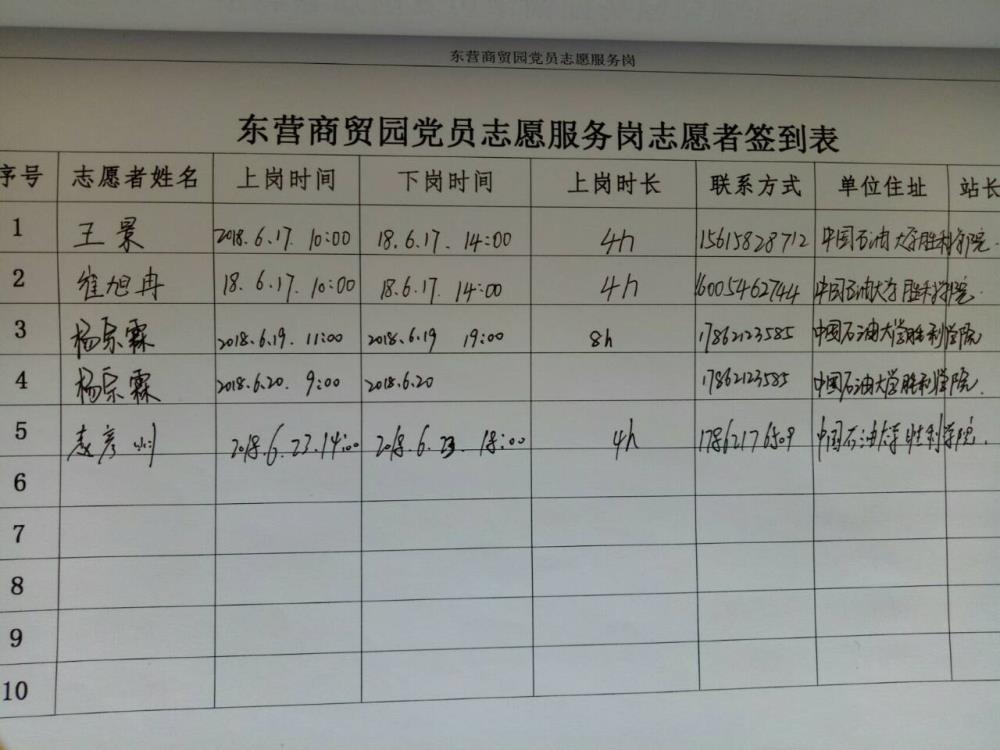 东营商贸园党员志愿服务岗
东营商贸园党员志愿服务岗志愿者签到表
序号 志愿者姓名 上岗时间 下岗时间 上岗时长 联系方式 单位住址 站长
1 王景 2018.6.17. 10:00 18.6.17. 14:00 4h 15615828712 中国石油大学胜利学院.
2 崔旭冉 18.6.17. 10:00 18.6.17. 14:00 4h 16005462744 中国石油大学胜利学院.
3 杨宗霖 2018.6.19. 11:00 2018.6.19 19:00 8h 17862123585 中国石油大学胜利学院
4 杨宗霖 2018.6.20. 9:00 2018.6.20 17862123585 中国石油大学胜利学院.
5 彦 2018.6.23.14:00 2018.6.23 18:00 4h 17862176509 中国石油大学胜利学院.
6
7
8
9
10